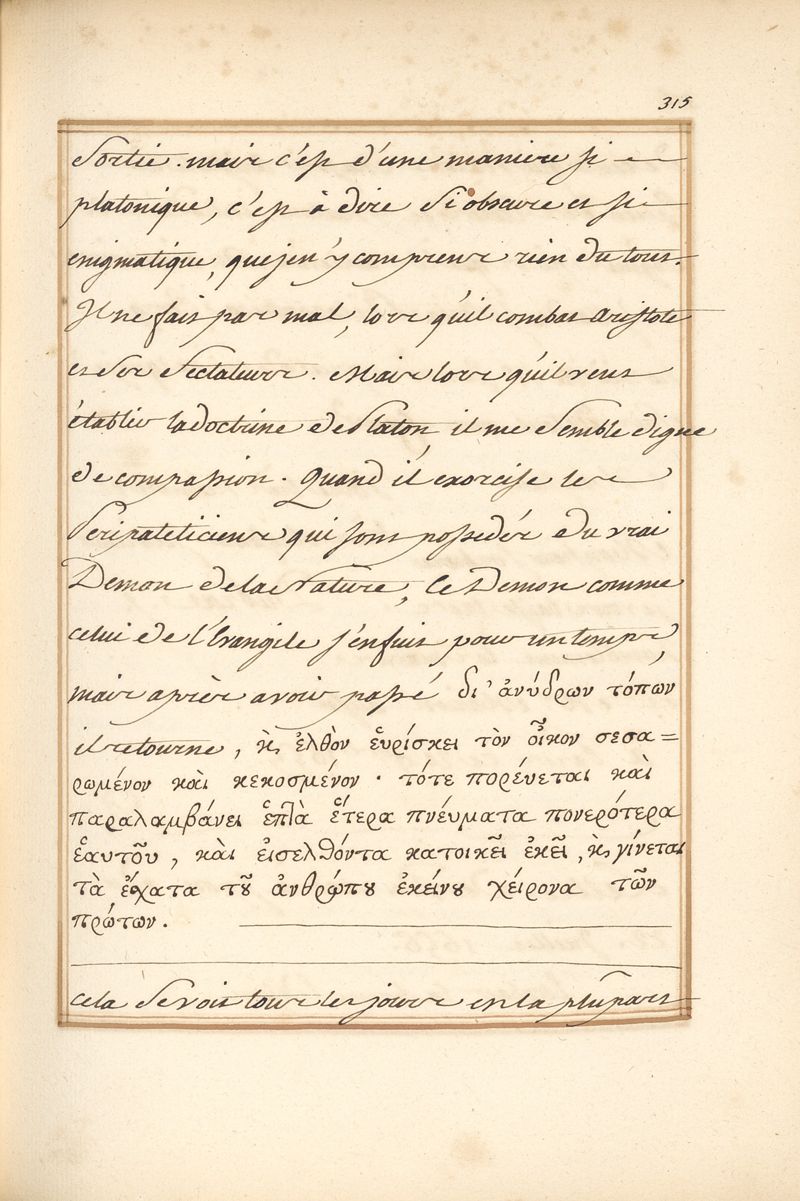 315
Sortie. mais c'est d'une maniere si
platonique, c'est à dire si obscure et si
enigmatique, que je n'y comprens rien du tout.
Il ne fait pas mal, lors qu'il combat Aristote
et ses Sectateurs. Mais lors qu'il veut
établir la doctrine de Platon, il me semble digne
de compassion. Quand il exorcise les
Péripateticiens qui sont possedés du vrai
Demon de la Nature, Ce Demon comme
celui de l'Evangile s'enfuit pour un temps,
mais après avoir passé δι' ἀνύδρων τόπων
il retourne, ϗ ἐλθὸν ἑυρίσκει τὸν οἶκον σεσα=
ρωμένον καὶ κεκοσμένον. τότε πορέυεται καὶ
παραλαμβάνει ἑπτὰ ἕτερα πνέυματα πονερότερα
ἑαυτοῦ, καὶ ἐισελθόντα κατοικεῖ ἐκεῖ, ϗ γίνεται
τὰ ἔϛχατα τȣ͂ ἀνθρώπȣ ἐκείνȣ χείρονα τῶν
πρώτων.
cela se voit tous les jours en la plûpart